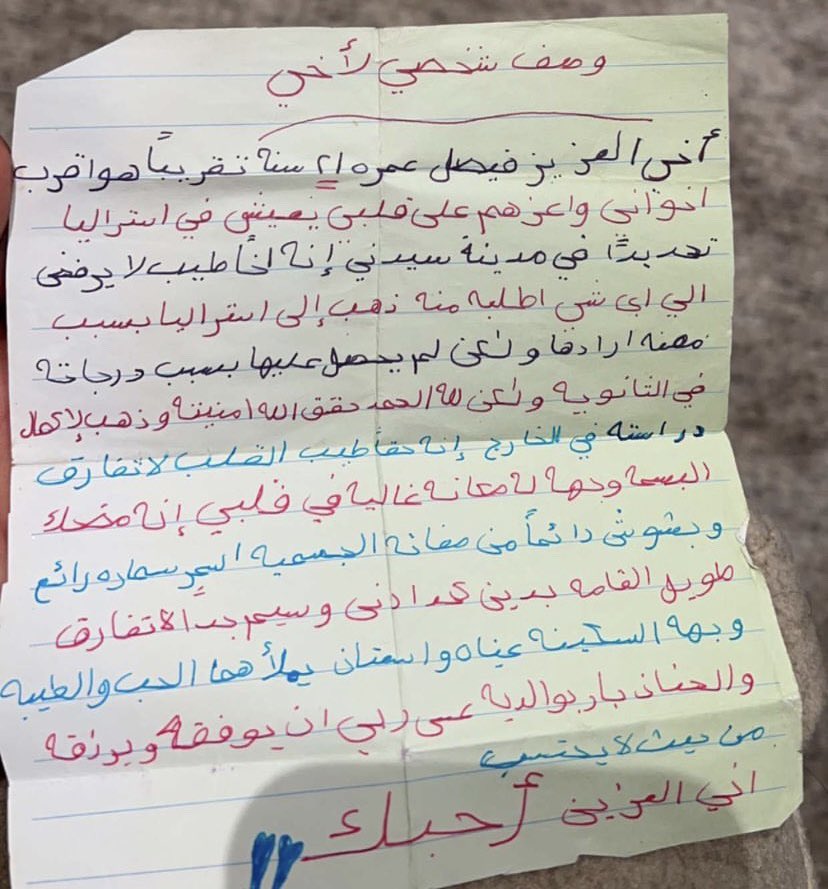 وصف شخصي لأخي
أخي العزيز فيصل عمره ٢١ سنة تقريباً هو اقرب
اخواني واعزهم على قلبي يعيش في استراليا
تحديداً في مدينة سيدني إنه اخاً طيب لا يرفض
الي اي شي اطلبه منه ذهب إلى استراليا بسبب
مهنه ارادها ولكن لم يحصل عليها بسبب درجاته
في الثانويه ولكن لله الحمد حقق الله امنيته وذهب لإكمال
دراسته في الخارج إنه حقاً طيب القلب لا تفارق
البسمه وجهه له مكانه غاليه في قلبي إنه مضحك
وبشوش دائماً من صفاته الجسميه اسمر سماره رائع
طويل القامه بدين كحد ادنى وسيم جداً لا تفارق
وجهه السكينه عيناه واسعتان يملأهما الحب والطيبه
والحنان بار بوالديه عسى ربي ان يوفقه ويرزقه
من حيث لا يحتسب
اخي العزيز أحبك "